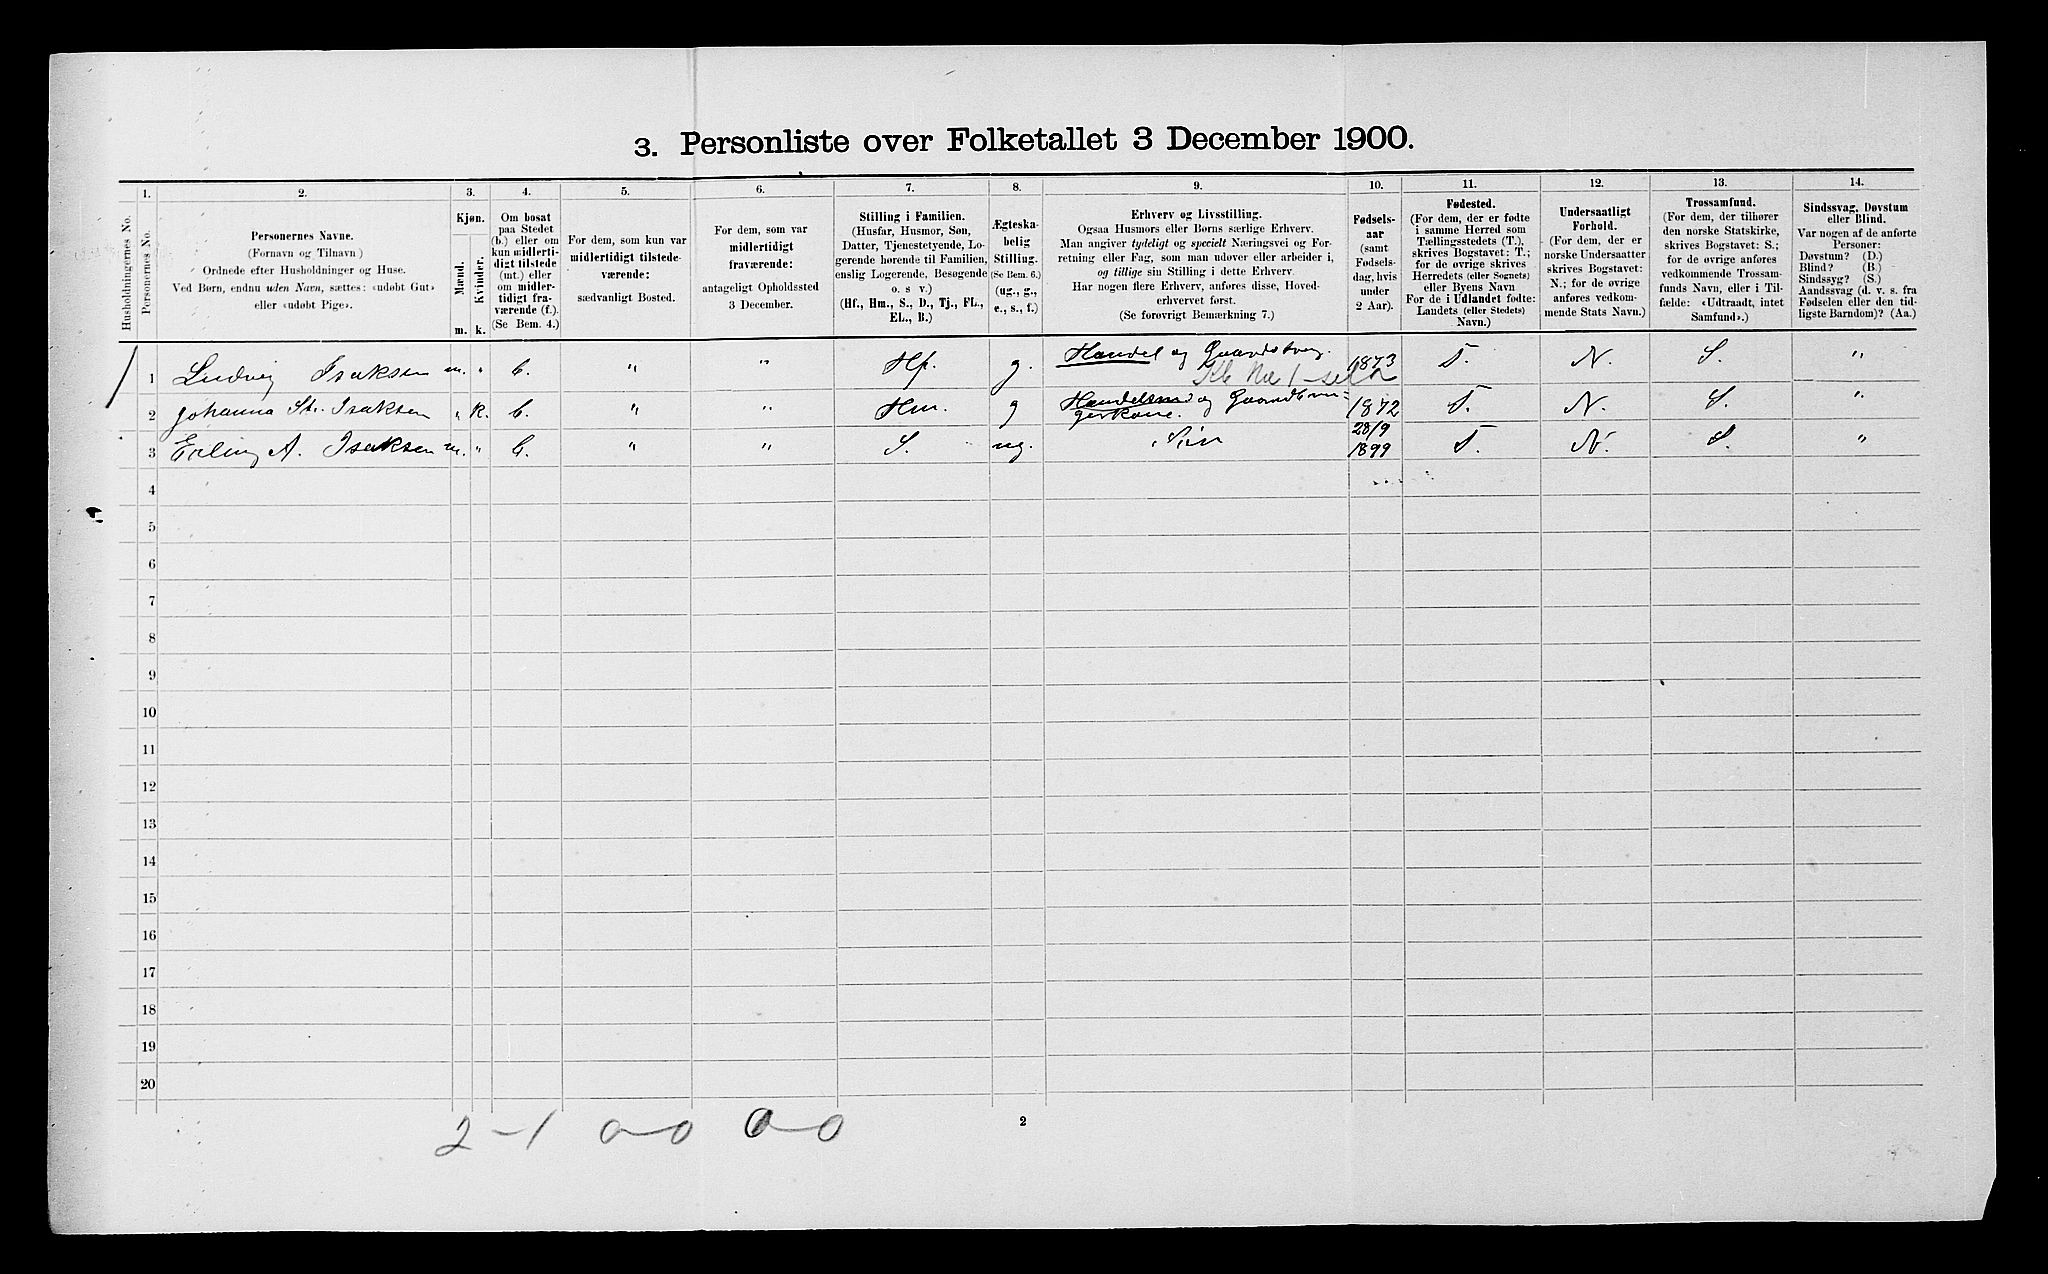 3. Personliste over Folketallet 3 December 1900.
1. 2. 3. 4. 5. 6. 7. 8. 9. 10. 11. 12. 13. 14.
Husholdningernes No.
Personernes No.
Personernes Navne.
(Fornavn og Tilnavn)
Ordnede efter Husholdninger og Huse.
Ved Børn, endnu uden Navn, sættes: «udøbt Gut»
eller «udøbt Pige».
Kjøn.
Mænd.
Kvinder.
m. k.
Om bosat
paa Stedet
(b.) eller om
kun midlerti-
digt tilstede
(mt.) eller
om midler-
tidigt fra-
værende (f.).
(Se Bem. 4.)
For dem, som kun var
midlertidigt tilstede-
værende:
sædvanligt Bosted.
For dem, som var
midlertidigt
fraværende:
antageligt Opholdssted
3 December.
Stilling i Familien.
(Husfar, Husmor, Søn,
Datter, Tjenestetyende, Lo-
gerende hørende til Familien,
enslig Logerende, Besøgende
o. s v.)
(Hf., Hm., S., D., Tj., FL.,
EL., B.)
Ægteska-
belig
Stilling.
(Se Bem. 6.)
(ug., g.,
e., s., f.)
Erhverv og Livsstilling.
Ogsaa Husmors eller Børns særlige Erhverv.
Man angiver tydeligt og specielt Næringsvei og For-
retning eller Fag, som man udover eller arbeider i,
og tillige sin Stilling i dette Erhverv.
Har nogen flere Erhverv, anføres disse, Hoved-
erhvervet først.
(Se forøvrigt Bemærkning 7.)
Fødsels-
aar
(samt
Fødsels-
dag, hvis
under
2 Aar).
Fødested.
(For dem, der er fødte
i samme Herred som
Tællingsstedets (T.),
skrives Bogstavet: T.;
for de øvrige skrives
Herredets (eller Sognets)
eller Byens Navn
For de i Udlandet fødte:
Landets (eller Stedets)
Navn.)
Undersaatligt
Forhold.
(For dem, der er
norske Undersaatter
skrives Bogstavet:
N.; for de øvrige
anføres vedkom-
mende Stats Navn.)
Trossamfund.
(For dem, der tilhører
den norske Statskirke,
skrives Bogstavet: S.;
for de øvrige anføres
vedkommende Trossam-
funds Navn, eller i Til-
fælde: «Udtraadt, intet
Samfund».)
Sindssvag, Døvstum
eller Blind.
Var nogen af de anførte
Personer:
Døvstum? (D.)
Blind? (B.)
Sindssyg? (S.)
Aandssvag (d. v. s. fra
Fødselen eller den tid-
ligste Barndom)? (Aa.)
1 Ludvig Isaksen m. " b. " " Hf. g. Handel og Gaardsbrug. 1873 T. N. S. "
2 Johanna St. Isaksen " k. b. " " Hm g Handelsmd og Gaardbru- 1872 T. N. S. "
gerkone.
3 Erling A. Isaksen m. " b. " " S. ug. Søn 28/9 1899 T. N. S. "
4
5
6
7
8
9
10
11
12
13
14
15
16
17
18
19
20
2-1 0-0 0-0
2